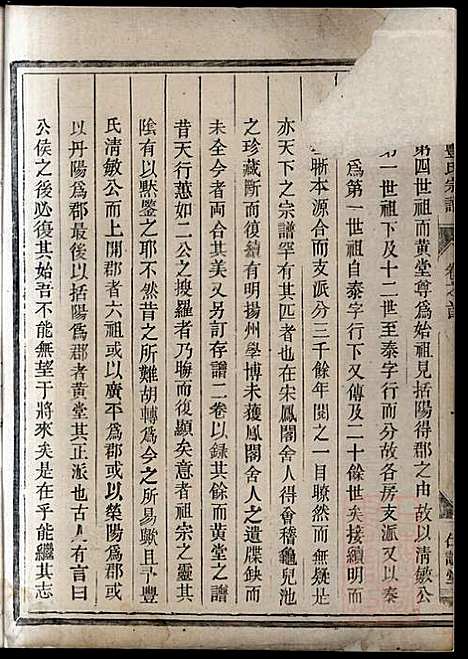 豐氏宗譜 卷之首
第四世祖而黃堂尊為始祖見括陽得郡之由故以清敏公
第一世祖下及十二世至泰字行而分故各房支派又以泰
為第一世祖自泰字行下又傳及二十餘世矣接續明而
晰本源合而支派分三千餘年閱之一目瞭然而無疑是
亦天下之宗譜罕有其匹者也在宋鳳閣舍人得會稽龜兒池
之珍藏斷而復續有明揚州學博未獲鳳閣舍人之遺牒缺而
未全今者兩合其美又另訂存譜二卷以錄其餘而黃堂之譜
昔天行蕙如二公之搜羅者乃聯而復顯矣意者祖宗之靈其
陰有以默鑒之耶不然昔之所難胡轉為今之所易歟且予豐
氏清敏公而上開郡者六祖或以廣平為郡或以榮陽為郡或
以丹陽為郡最後以括陽為郡者黃堂其正派也古人有言曰
公侯之後必復其始吾不能無望于將來矣是在乎能繼其志